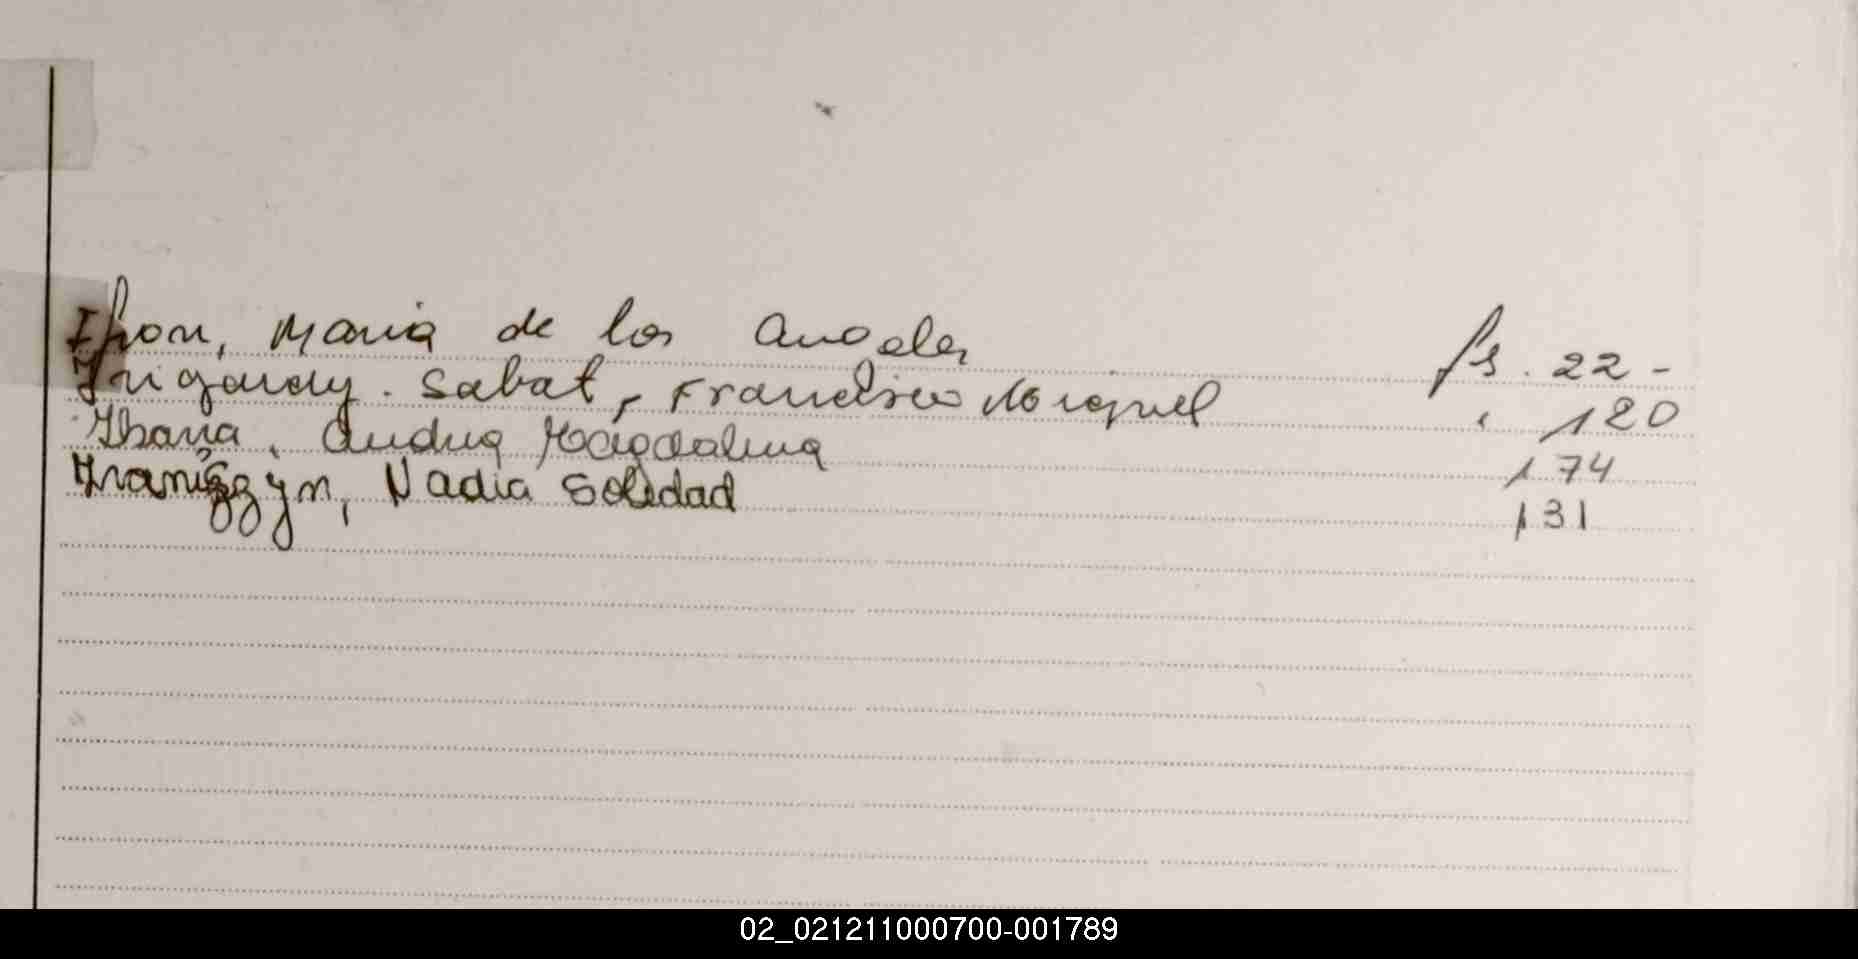 Ipon, Maria de los Angeles fs. 22-
Irigaray. Sabat, Francisco Miguel " 120
Ibarra, Andrea Magdalena 174
Nadia Soledad 131
02_021211000700-001789